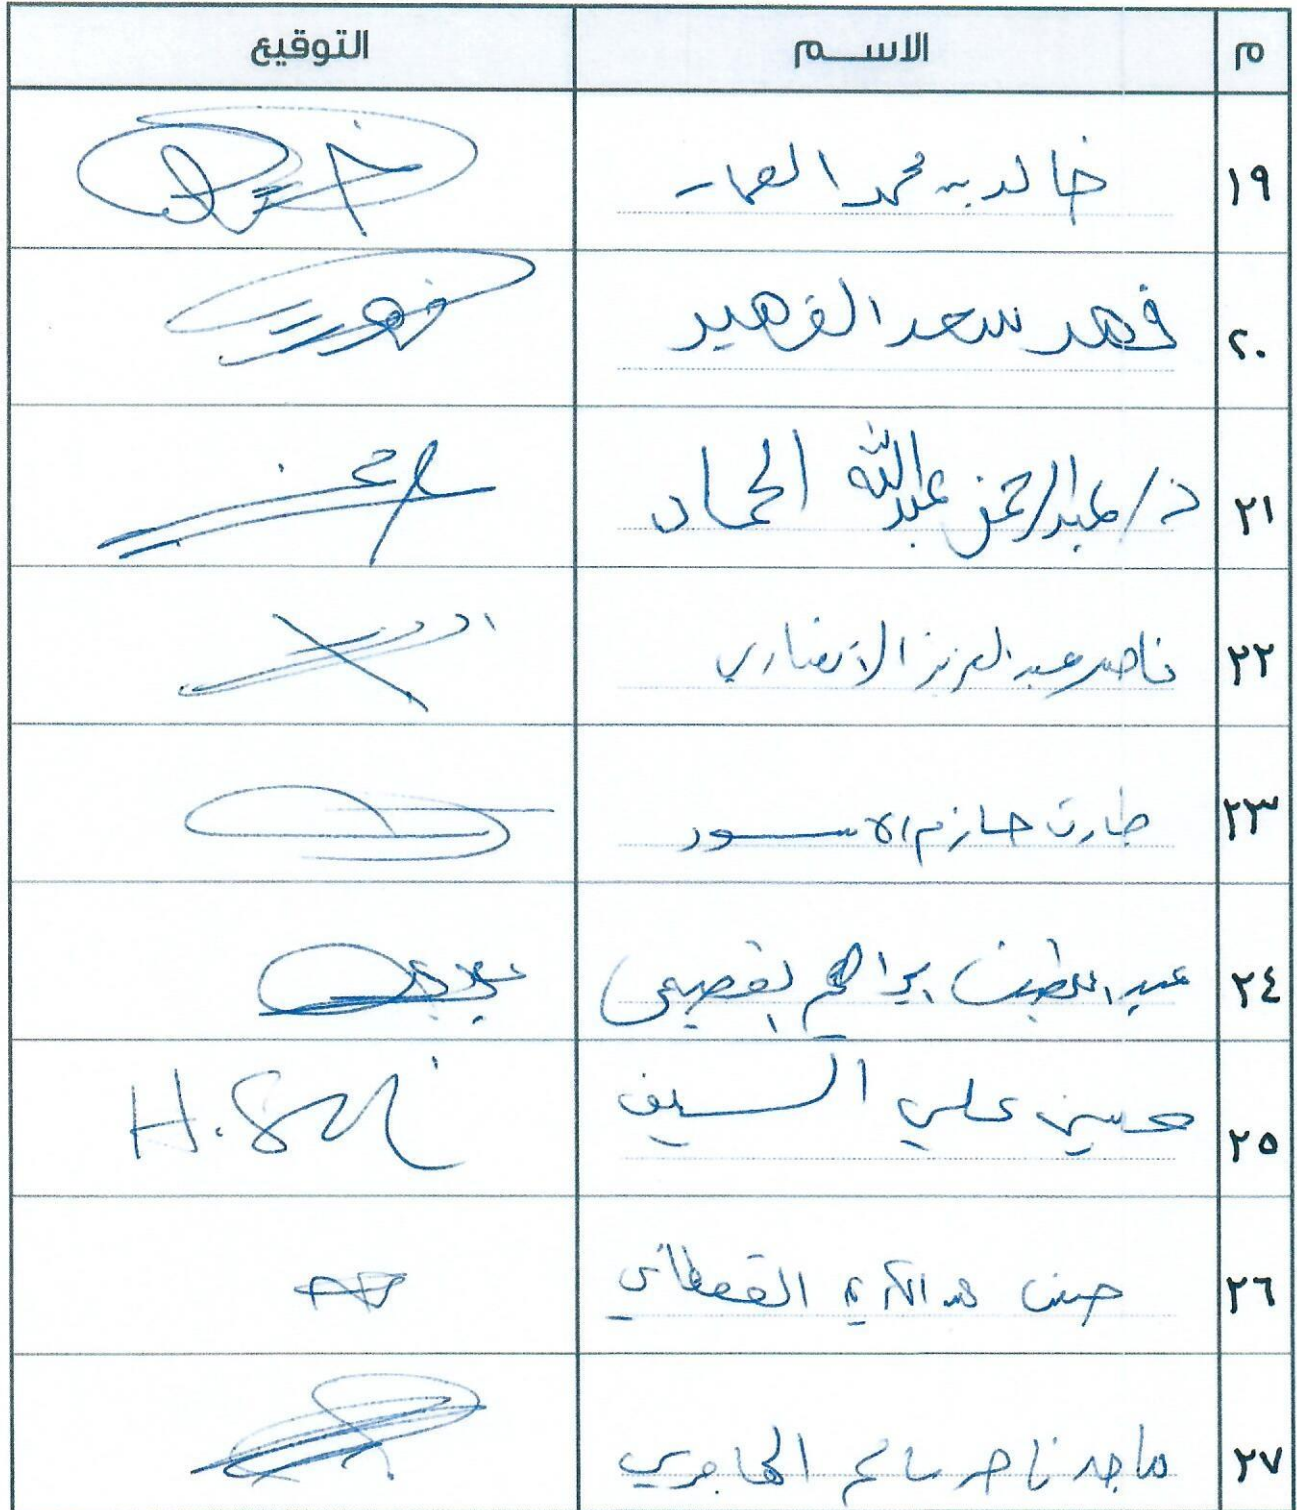 م الاســـم التوقيع
١٩ خالد بن محمد العمار
٢٠ فهد سعد الفهيد
٢١ د/عبدالرحمن عبدالله الحماد
٢٢ ناصر عبد العزيز الأنصاري
٢٣ طارق حازم الاســـود
٢٤ عبد اللطيف ابراهيم
٢٥ حسين علي الســـيف H.
٢٦ عبد الكريم القحطاني
٢٧ ماجد ناصر سالم